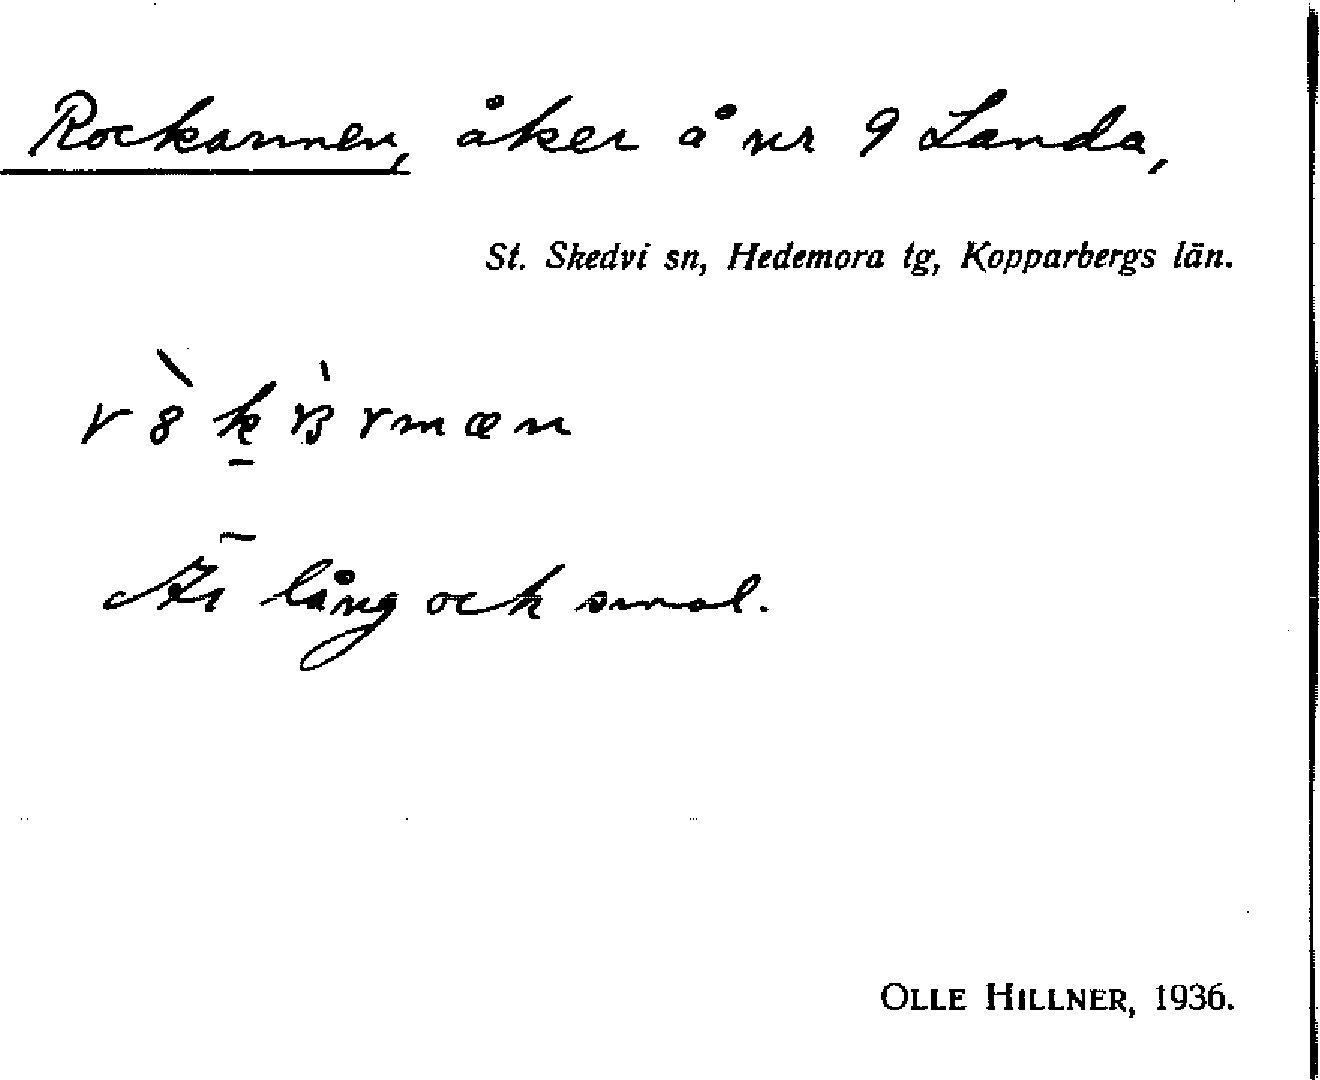 Rockarmen, åker å nr 9 Landa,
St. Skedvi sn, Hedemora tg, Kopparbergs län.
Är lång och smal.
OLLE HILLNER, 1936.